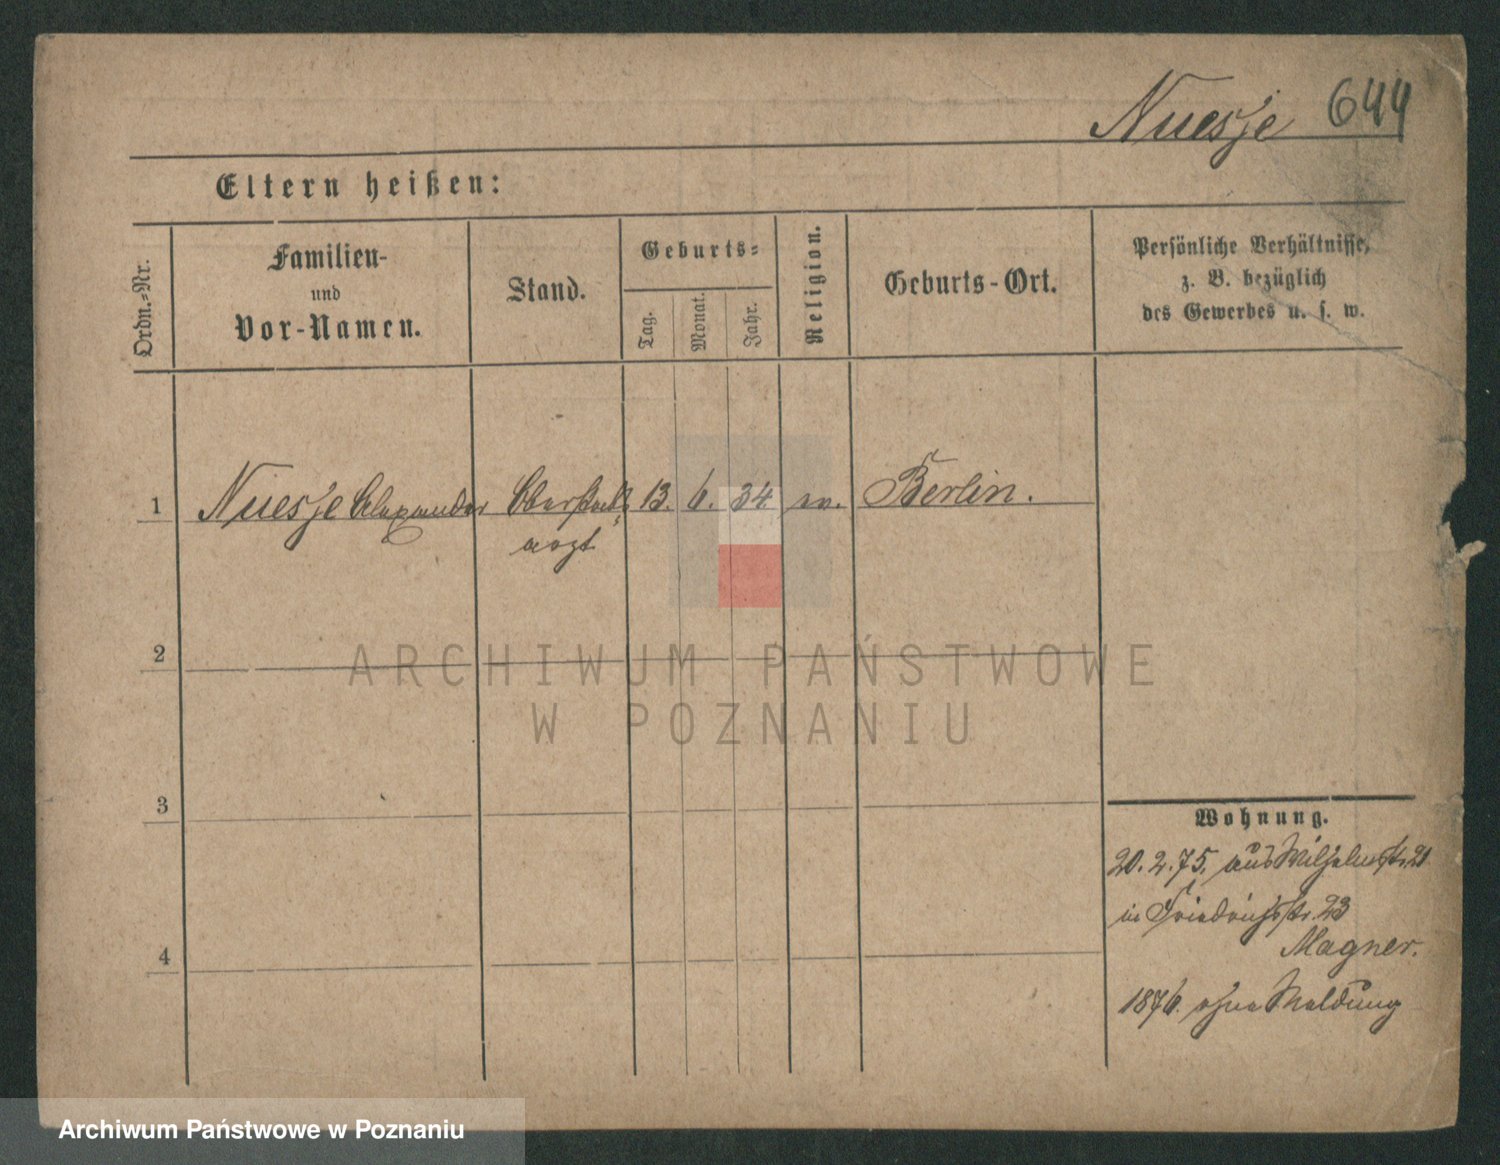 Nuesje 644
Eltern heißen:
Ordn.-Nr.
Familien-
und
Vor-Namen.
Stand.
Geburts-
Tag.
Monat.
Jahr.
Religion.
Geburts-Ort.
Persönliche Verhältnisse,
z. B. bezüglich
des Gewerbes u. s. w.
1 Nuesje Alexander Oberstabs 13. 6. 34. ev. Berlin.
arzt
2
3
4
Wohnung.
20. 2. 75. aus Wilhelmstr. 21
in Friedrichstr. 23
Magner.
1876. ohne Meldung
ARCHIWUM PAŃSTWOWE
W POZNANIU
Archiwum Państwowe w Poznaniu